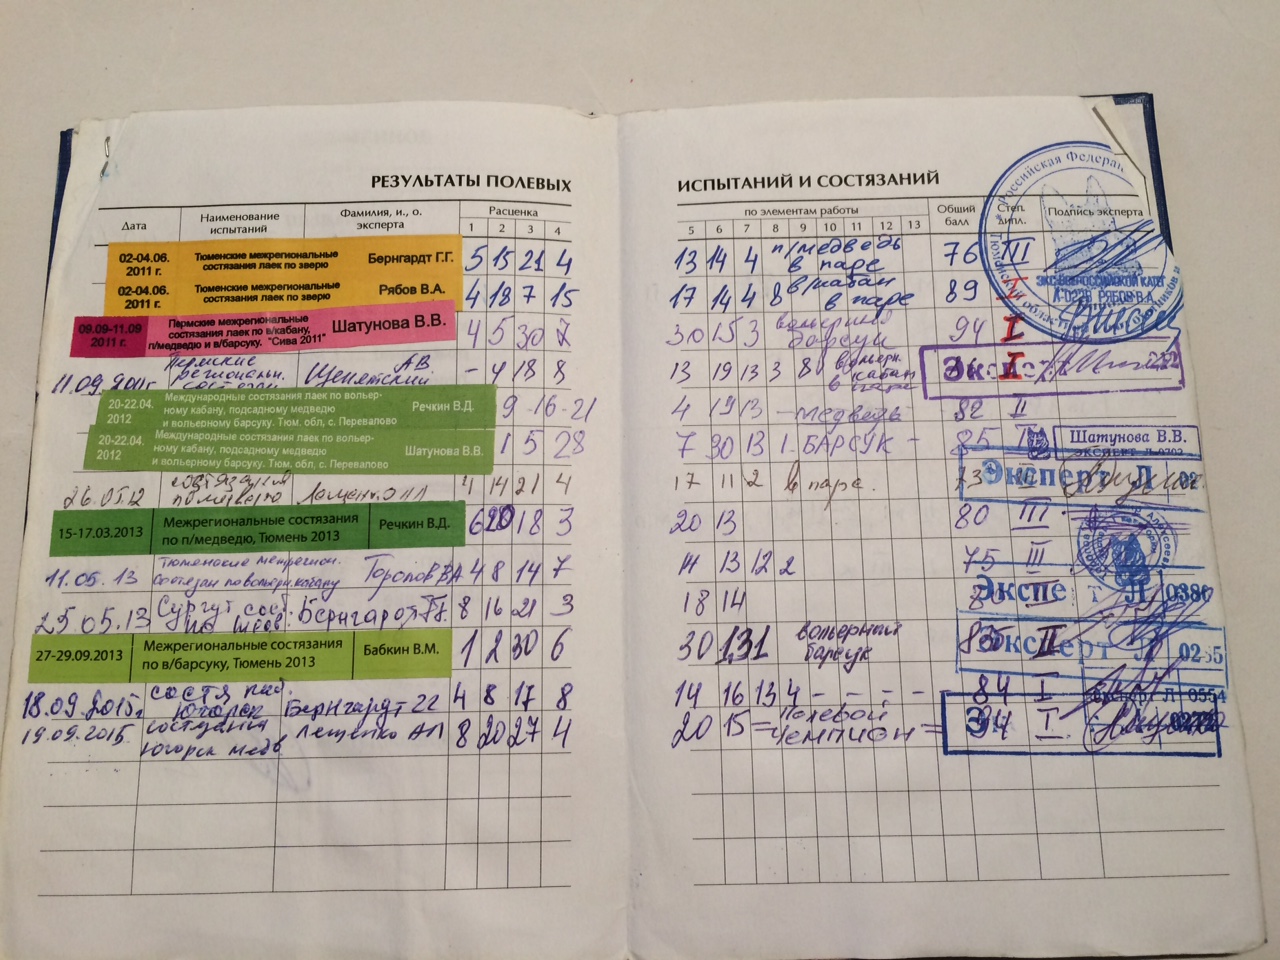 РЕЗУЛЬТАТЫ ПОЛЕВЫХ ИСПЫТАНИЙ И СОСТЯЗАНИЙ
Дата Наименование испытаний Фамилия, и., о. эксперта Расценка по элементам работы Общий балл Степ. дипл. Подпись эксперта
1 2 3 4 5 6 7 8 9 10 11 12 13
02-04.06. 2011 г. Тюменские межрегиональные состязания лаек по зверю Бернгардт Г.Г. 5 15 21 4 13 14 4 п/медведь в паре 76 III
02-04.06. 2011 г. Тюменские межрегиональные состязания лаек по зверю Рябов В.А. 4 18 7 15 17 14 4 8 в/кабан в паре 89 I
09.09-11.09 2011 г. Пермские межрегиональные состязания лаек по в/кабану, п/медведю и в/барсуку. "Сива 2011" Шатунова В.В. 4 5 30 7 30 15 3 барсук 94 I
11.09.2011г Пермские АВ - 4 18 8 13 19 13 3 8 вольерн. кабан в паре I
20-22.04. 2012 Международные состязания лаек по вольерному кабану, подсадному медведю и вольерному барсуку. Тюм. обл, с. Перевалово Речкин В.Д. 9 -16 -21 4 19 13 - медведь 82 II
20-22.04. 2012 Международные состязания лаек по вольерному кабану, подсадному медведю и вольерному барсуку. Тюм. обл, с. Перевалово Шатунова В.В. 1 5 28 7 30 13 1 - БАРСУК - 85
26.05.12 состязания по медведю 4 14 21 4 17 11 2 в паре. 73
15-17.03.2013 Межрегиональные состязания по п/медведю, Тюмень 2013 Речкин В.Д. 6 20 18 3 20 13 80 III
11.05.13 Тюменские межрегион. состязан по вольерн. кабану Торопов ВА 4 8 14 7 14 13 12 2 75 III
25.05.13 Сургут сост. по медв. Бернгардт Г.Г. 8 16 21 3 18 14
27-29.09.2013 Межрегиональные состязания по в/барсуку, Тюмень 2013 Бабкин В.М. 1 2 30 6 30 13 1 вольерный барсук 85 II
18.09.2015г Югорск Бернгардт ГГ 4 8 17 8 14 16 13 4 - - - - 84 I
19.09.2015. состязания Югорск медв Лещенко АП 8 20 27 4 20 15 = Полевой Чемпион = 94 I
Российская Федерация
ЭКСПЕРТ ВСЕРОССИЙСКОЙ КАТЕГ
Л-0226 РЯБОВ В.А.
Эксперт
Шатунова В.В.
ЭКСПЕРТ Л-0302
Эксперт Л
Эксперт Л 0380
Эксперт Л 0265
Эксперт Л 0554
Э